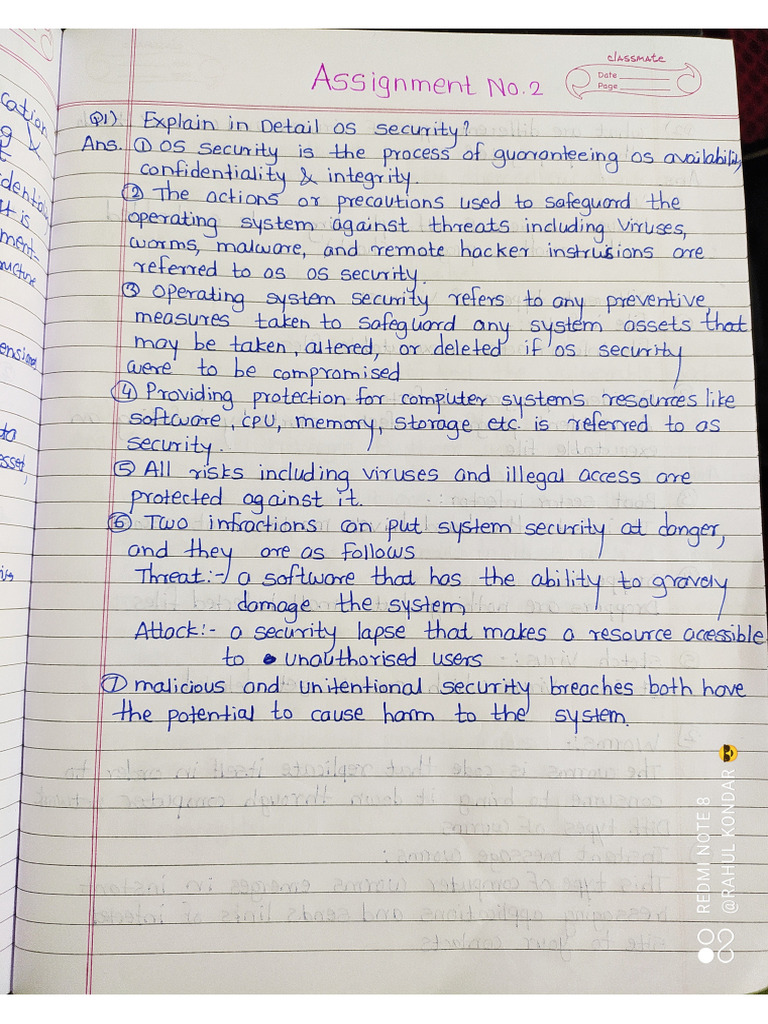 classmate
Date
Page
Assignment No.2
Q1) Explain in Detail OS security?
Ans. ① OS security is the process of guaranteeing os availability,
confidentiality & integrity.
② The actions or precautions used to safeguard the
operating system against threats including viruses,
worms, malware, and remote hacker instrusions are
referred to as os security.
③ Operating system security refers to any preventive,
measures taken to safeguard any system assets that
may be taken, altered, or deleted if os security
were to be compromised
④ Providing protection for computer systems resources like
software, CPU, memory, storage etc. is referred to as
security.
⑤ All risks including viruses and illegal access are
protected against it.
⑥ Two infractions can put system security at danger,
and they are as follows
Threat:- a software that has the ability to gravely
damage the system
Attack:- a security lapse that makes a resource acessible
to unauthorised users
⑦ malicious and unitentional security breaches both have
the potential to cause harm to the system.
REDMI NOTE 8
@RAHUL KONDAR 😎